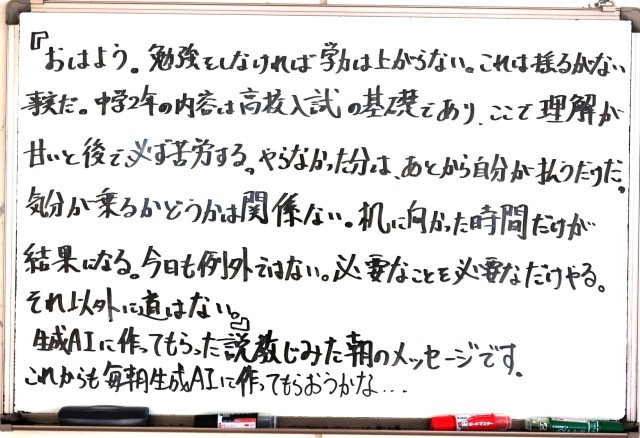 『おはよう。勉強をしなければ学力は上がらない。これは揺るがない
事実だ。中学2年の内容は高校入試の基礎であり、ここで理解が
甘いと後で必ず苦労する。やらなかった分は、あとから自分が払うだけだ。
気分が乗るかどうかは関係ない。机に向かった時間だけが
結果になる。今日も例外ではない。必要なことを必要なだけやる。
それ以外に道はない。』
生成AIに作ってもらった説教じみた朝のメッセージです。
これからも毎朝生成AIに作ってもらおうかな...
ボードマスター